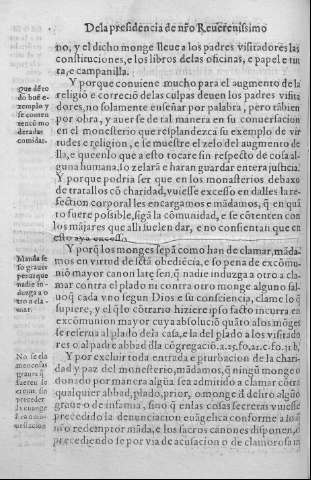 De la presidencia de nr̃o Reuerenissimo
no, y el dicho monge lleue a los padres visitadores las
constituciones, e los libros de las oficinas, e papel e tin
ta, e campanilla.
Y porque conuiene mucho para el augmento de la
religiõ e correciõ de las culpas deuen los padres visita
dores, no solamente enseñar por palabra, pero tãbien
por obra, y auerse de tal manera en su conuersacion
en el monesterio que resplandezca su exemplo de vir
tudes e religion, e se muestre el zelo del augmento de
lla, e que en lo que a esto tocare sin respecto de cosa al
guna humana, lo zelarã e haran guardar entera justicia.
Y porque podria ser que en los monasterios debaxo
de tratallos cõ charidad, vuiesse excesso en dalles la re-
fection corporal les encargamos e mãdamos, q̃ en quã
to fuere possible, sigã la cõmunidad, e se cõtenten con
los mãjares que alli suelen dar, e no consientan que en
esto aya excesso.
Y porq̃ los monges sepã como han de clamar, mãda-
mos en virtud de sctã obediẽcia, e so pena de excõmu-
niõ mayor canon latę sen. q̃ nadie induzga a otro a cla-
mar contra el plado ni contra otro monge alguno sal-
uo q̃ cada vno segun Dios e su consciencia, clame lo q̃
supiere, y el q̃ lo cõtrario hiziere ipso facto incurra en
excõmunion mayor cuya absoluciõ quãto a los mõges
se reserua al plado de la casa, e la del plado a los visitado
res o al padre abbad dla cõgregaciõ.
Y por excluir toda entrada e pturbacion de la chari-
dad y paz del monesterio, mãdamos, q̃ ningũ monge o
donado por manera algũa sea admitido a clamar cõtra
qualquier abbad, plado, prior, o monge d̃l delito algũo
graue o de infamia, sino q̃ en las cosas secretas vuiesse
precedido la denunciacion euãgelica conforme a lo q̃
nr̃o redemptor mãda, e los sacros canones disponen, o
precediendo se por via de acusacion o de clamorosa in
Que dẽ to
do buẽ e-
xemplo y
se conten
ten cõ mo
deradas
comidas.
Manda se
so graues
penas que
nadie in-
duzga a o
tro a cla-
mar.